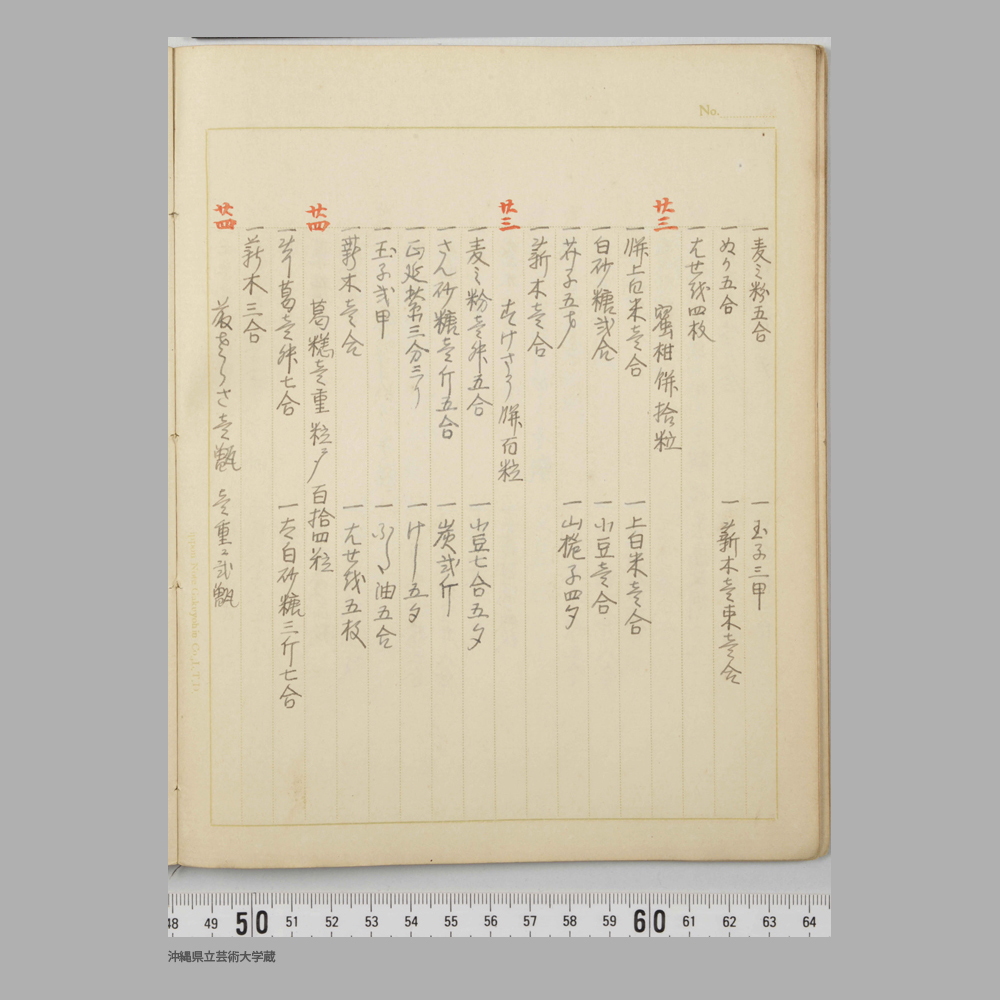 No.
一麦之粉五合 一玉子三甲
一ぬり五合 一薪木壱束壱合
一尤せ践四枚
廿三 蜜柑餅拾粒
一餅上白米壱合 一上白米壱合
一白砂糖弐合 一小豆壱合
一芥子五才 一山梔子四夕
一薪木壱合
廿三 餅百粒
一麦之粉壱升五合 一小豆七合五夕
一さん砂糖壱斤五合 一炭弐斤
三分 一けし五夕
一玉子弐甲 油五合
一薪木壱合 一尤せ践五枚
廿四 葛糕壱重 粒〆百拾四粒
葛壱升七合 一太白砂糖三斤七合
一薪木三合
廿四 壱甑 壱重ニ弐甑
48 49 50 51 52 53 54 55 56 57 58 59 60 61 62 63 64
沖縄県立芸術大学蔵